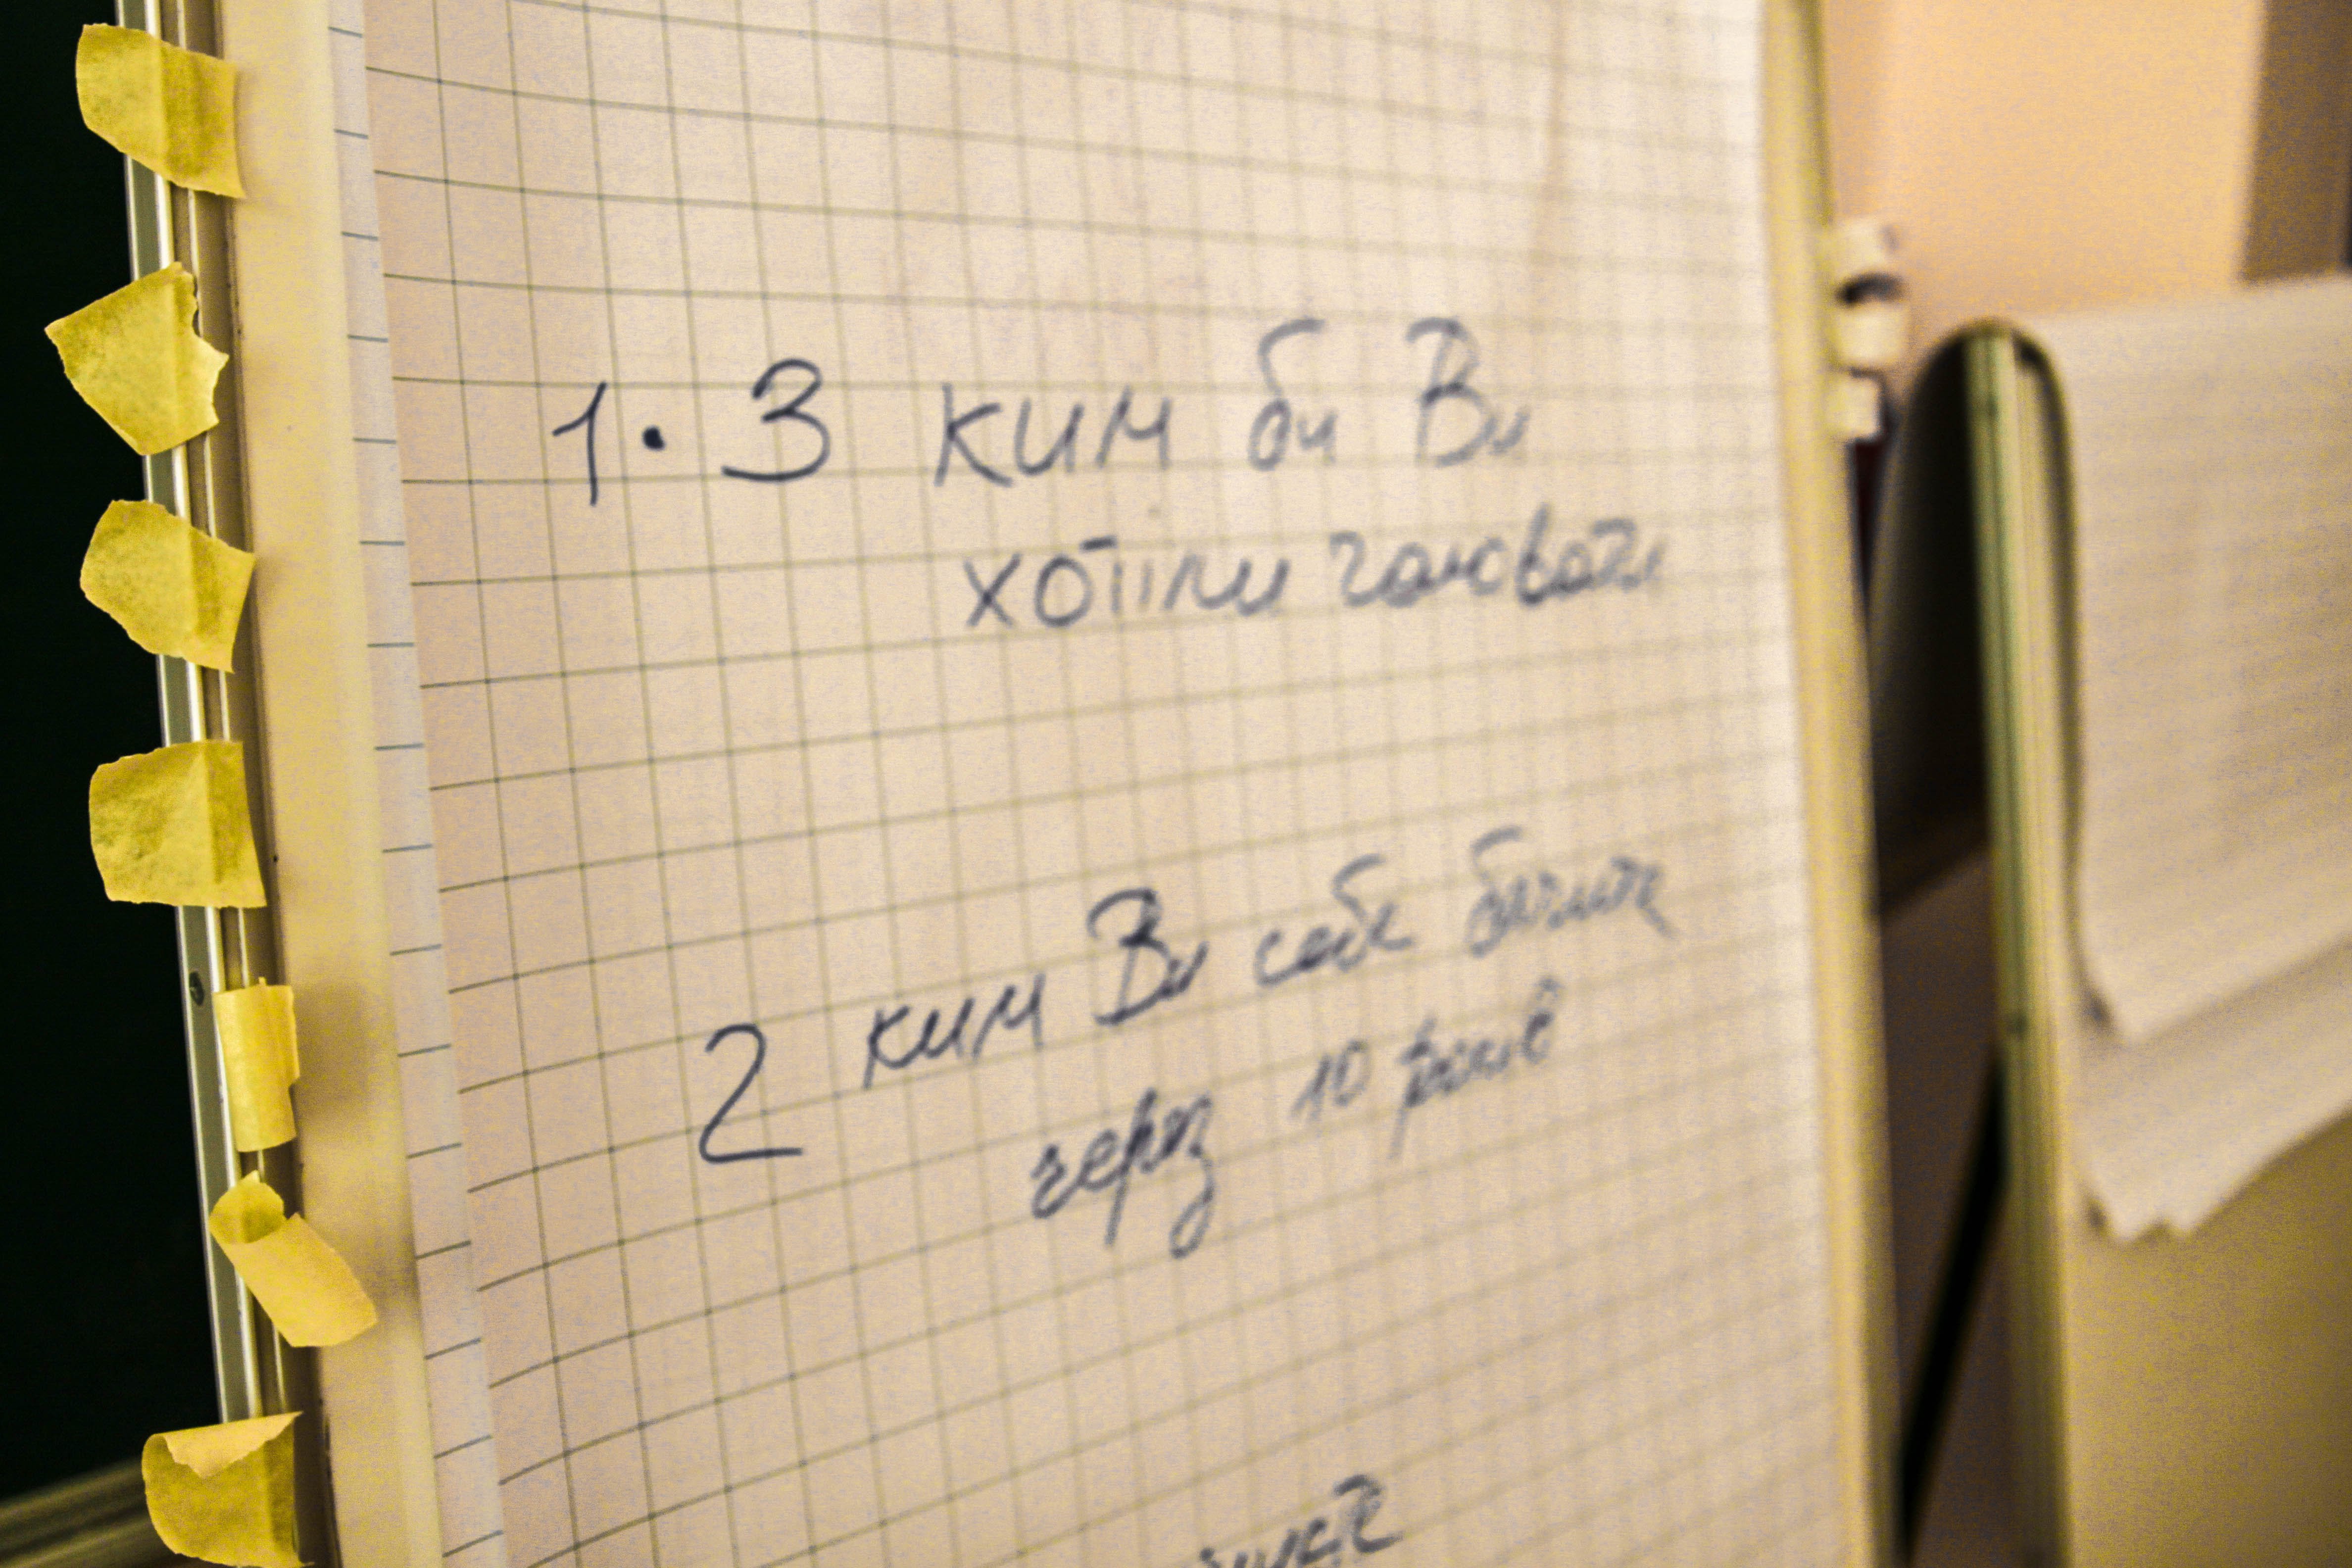 1. З ким би Ви
хотіли
2 ким Ви себе бачите
через 10 років